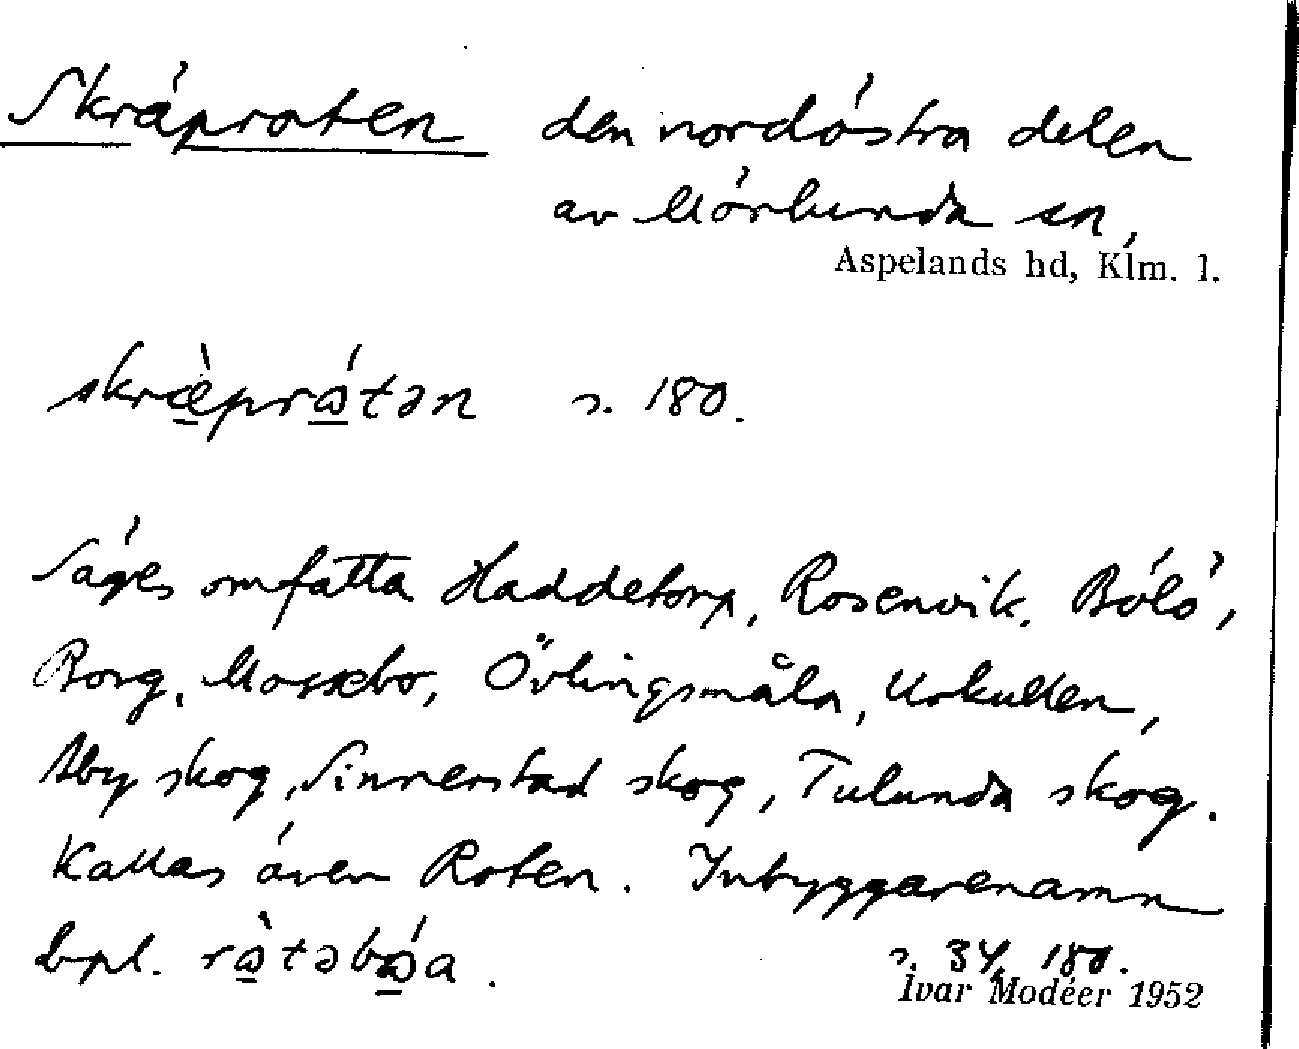 Skräproten den nordöstra delen
av Mörlunda sn,
Aspelands hd, Klm. l.
skræ̀prɷ́tən s. 180.
Säges omfatta Haddetorp, Rosenvik, Bölö,
Borg, Mossebo, Övlingsmåla, Urkullen,
Åby skog, Sinnerstad skog, Tulunda skog.
Kallas även Roten. Inbyggarenamn
bpl. rɷ̀təbɷ́a.
s. 34, 180.
Ivar Modéer 1952